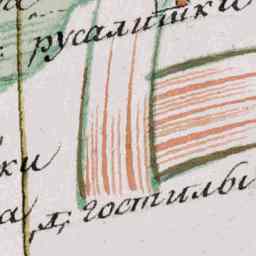 а
русалишки
ки
а д, гостилы